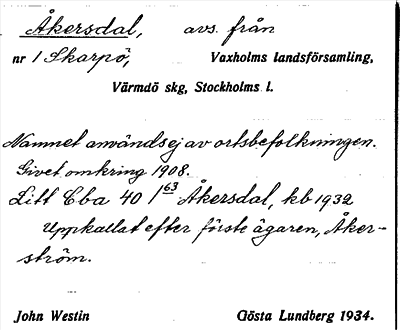 Åkersdal, avs. från
nr 1 Skarpö, Vaxholms landsförsamling,
Värmdö skg, Stockholms l.
Namnet användsej av ortsbefolkningen.
Givet omkring 1908.
Litt Cba 40 1 63 Åkersdal, kb 1932
Uppkallat efter förste ägaren, Åker-
ström.
John Westin Gösta Lundberg 1934.